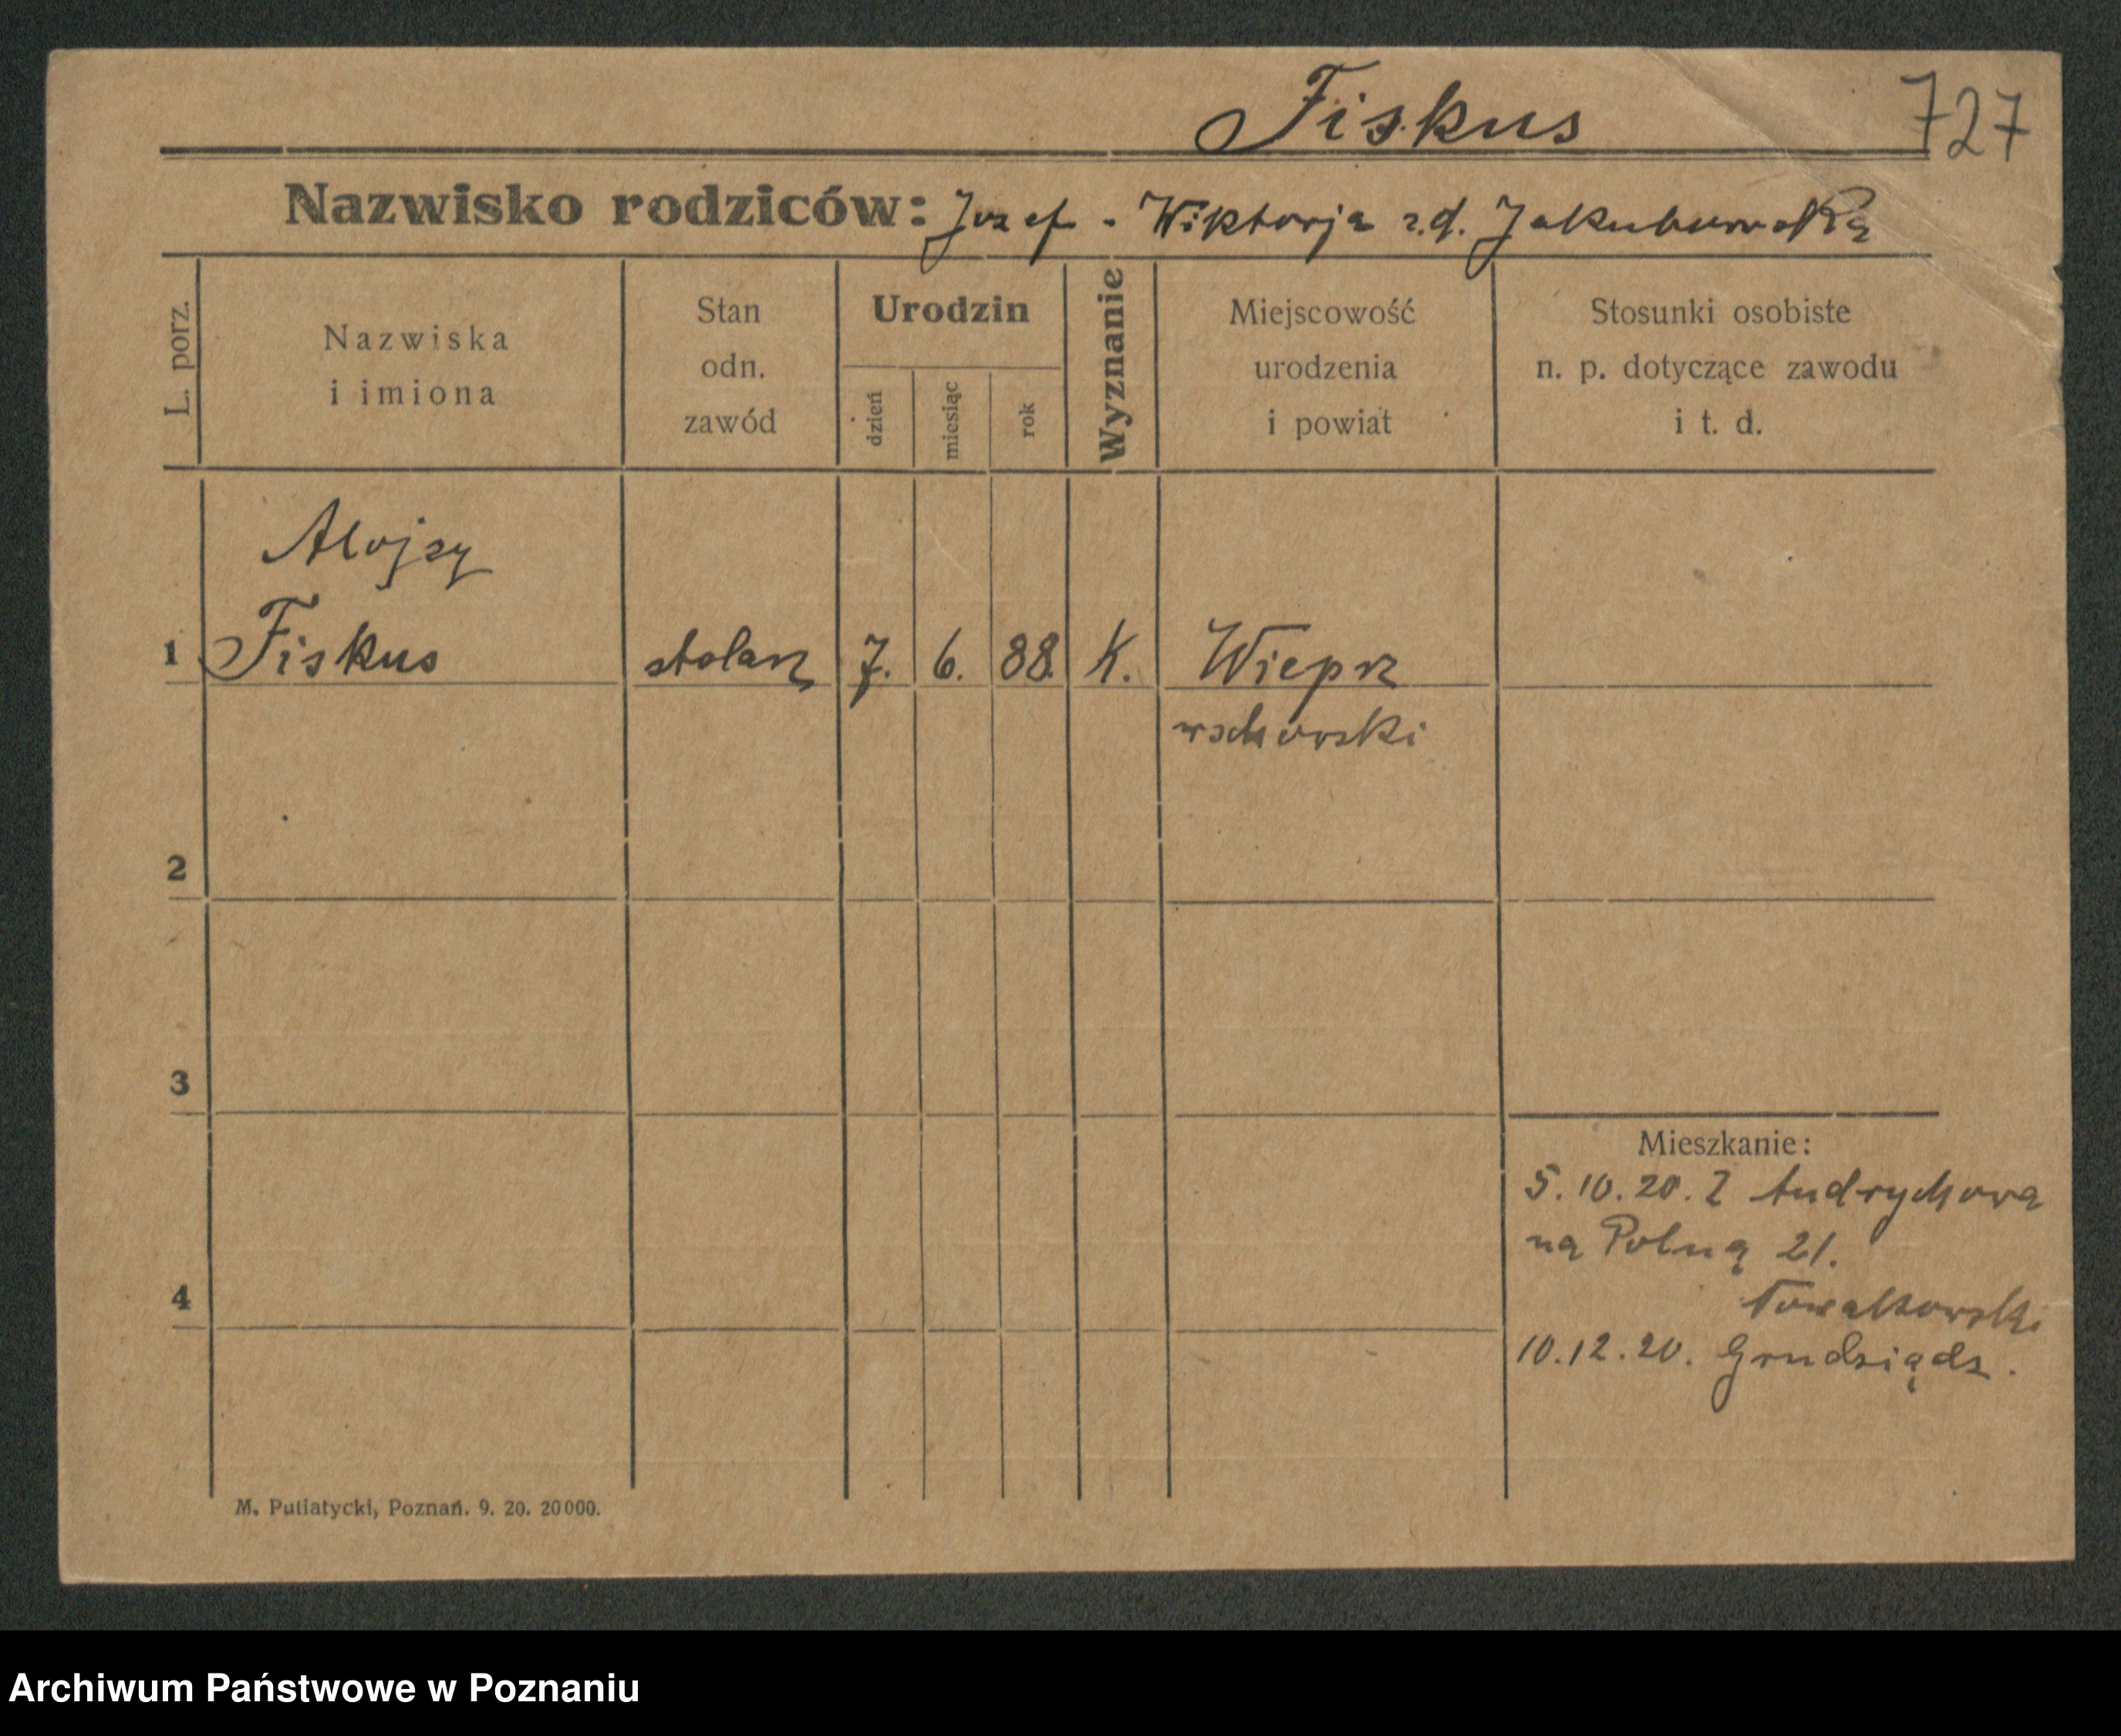 Fiskus
727
Nazwisko rodziców: Jozef - Wiktorja z.d. Jakubowska
L. porz.
Nazwiska
i imiona
Stan
odn.
zawód
Urodzin
dzień
miesiąc
rok
Wyznanie
Miejscowość
urodzenia
i powiat
Stosunki osobiste
n. p. dotyczące zawodu
i t. d.
Alojzy
1 Fiskus stolarz 7. 6. 88. K. Wieprz
wschowski
2
3
Mieszkanie:
5.10.20. Z Andrychowa
na Polną 21.
4
10.12.20. Grudziądz.
M. Putiatycki, Poznań. 9. 20. 20000.
Archiwum Państwowe w Poznaniu